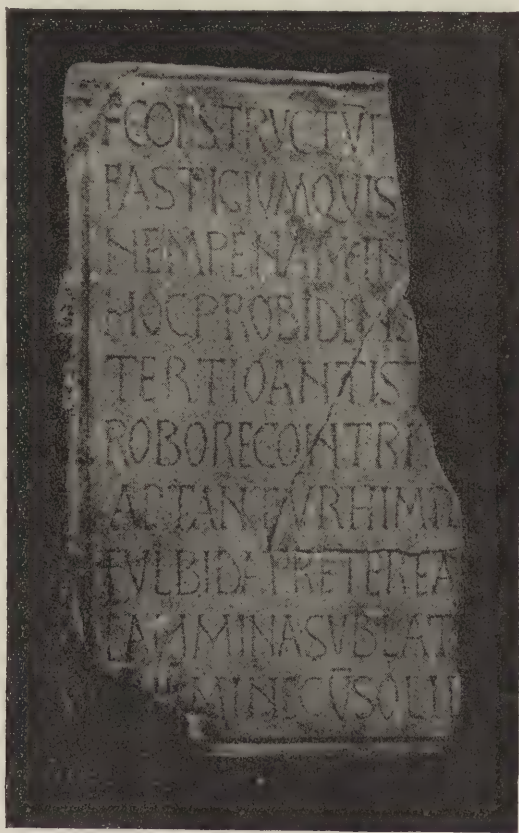 + CONSTRVCTV̄
FASTIGIVMQVIS
NEMPENAM IN
HOCPROBIDEMS
TERTIOANTIST
ROBORECONTRI
ACTANTVRHIMN
FVLBIDAPRETEREA
LAMMINASVBLAT
MINECV̄SOLII